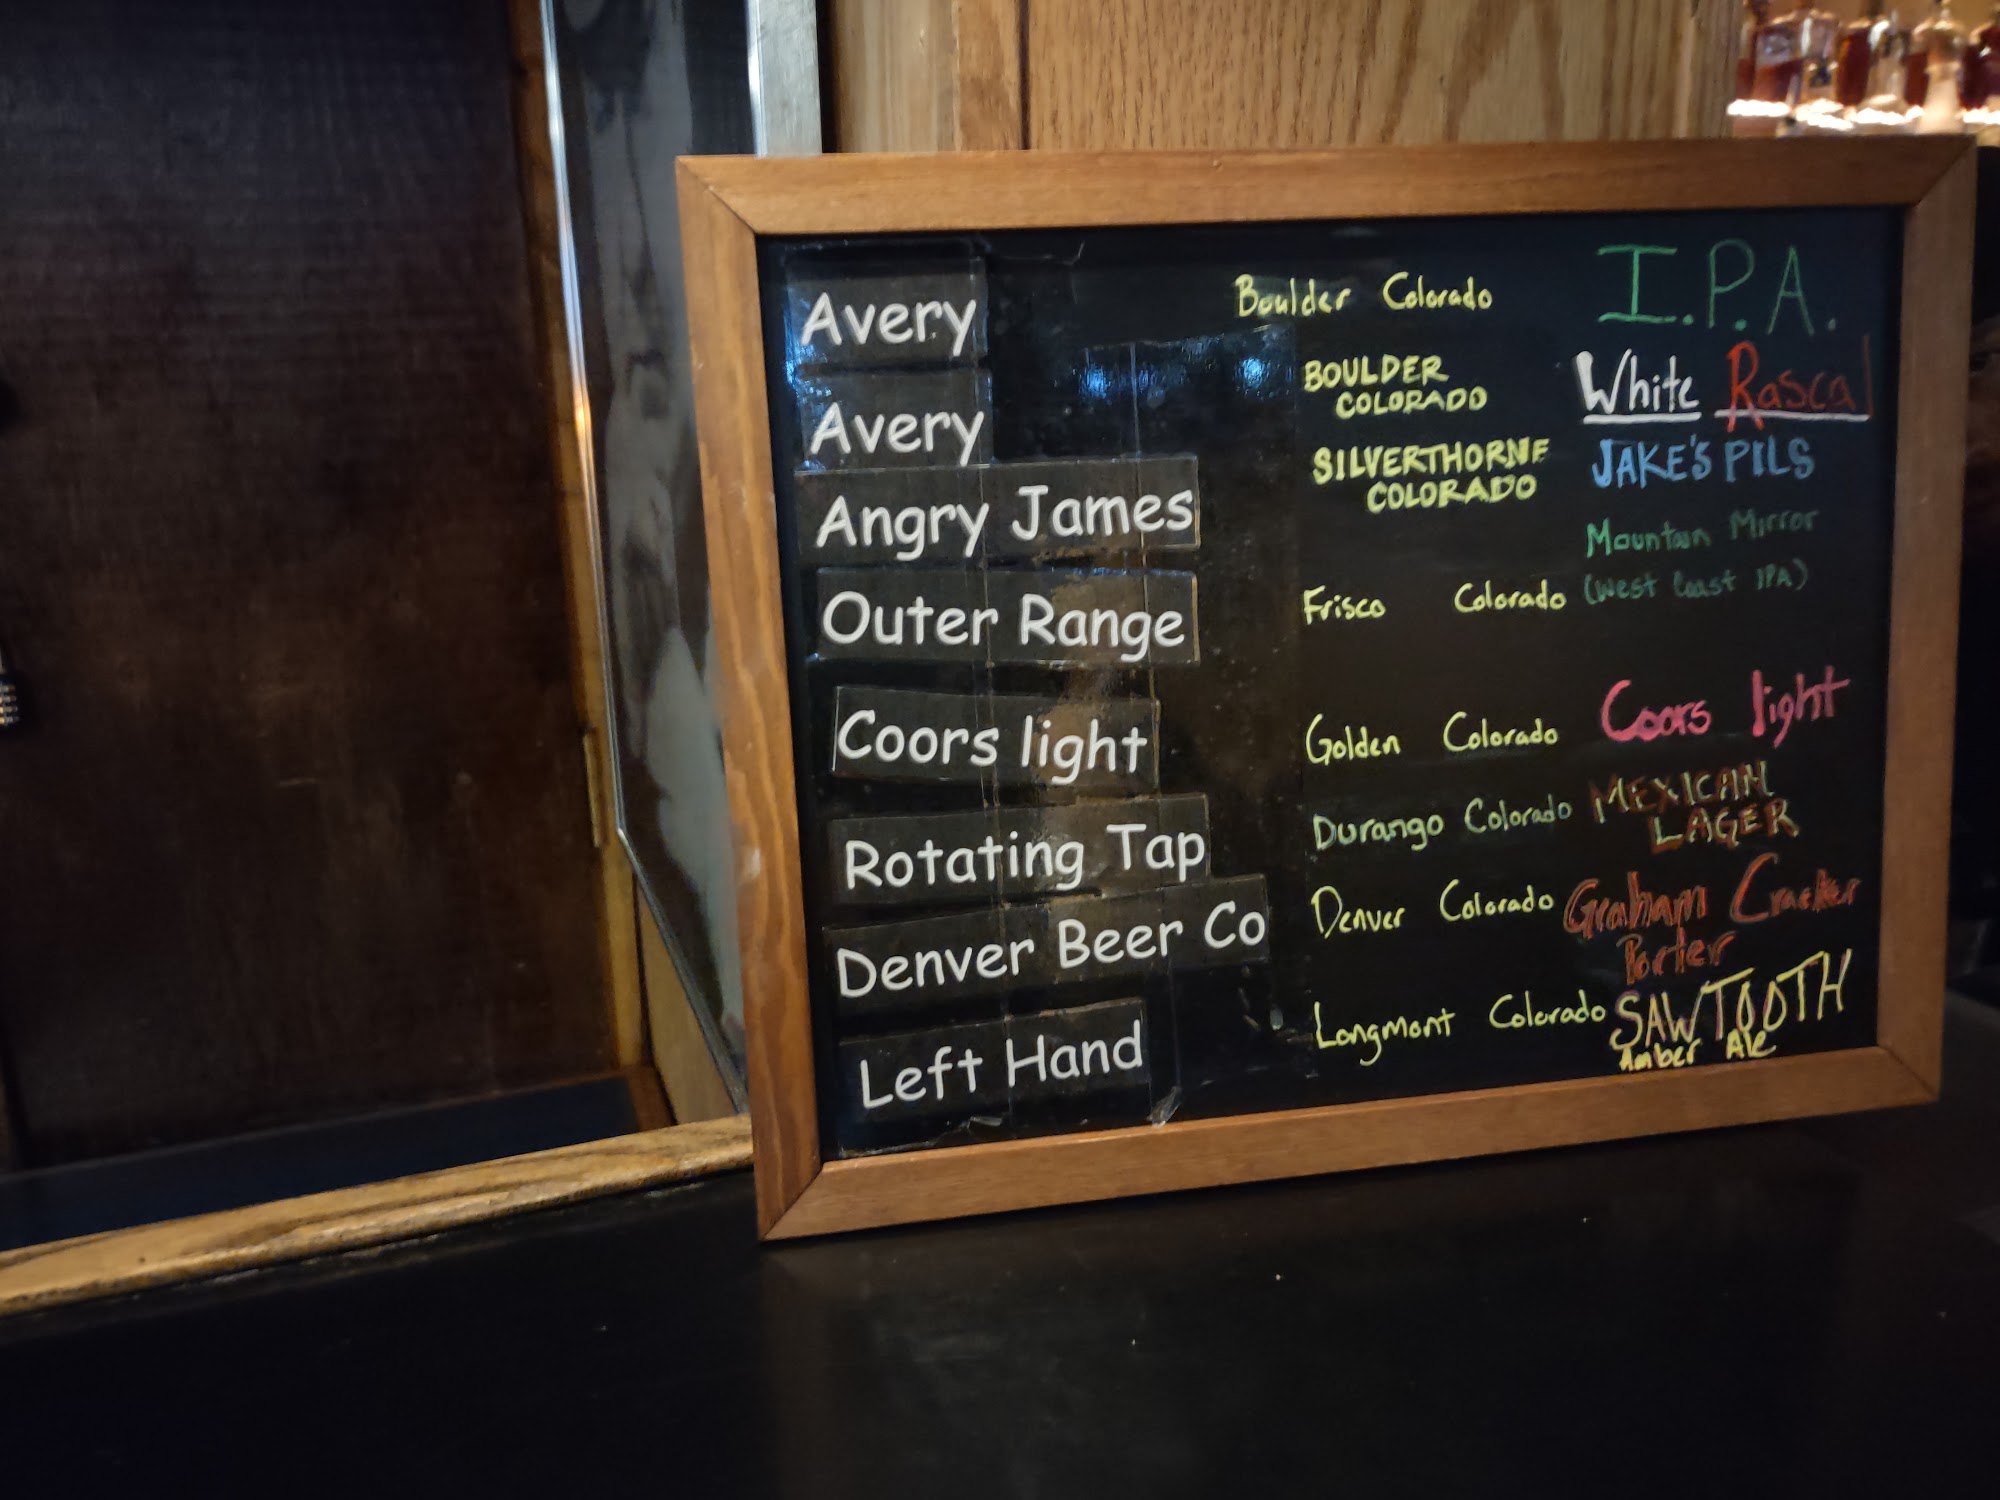 Avery Boulder Colorado I.P.A.
Avery BOULDER COLORADO White Rascal
Angry James SILVERTHORNE COLORADO JAKE'S PILS
Outer Range Frisco Colorado Mountain Mirror
(West Coast IPA)
Coors light Golden Colorado Coors light
Rotating Tap Durango Colorado MEXICAN
LAGER
Denver Beer Co Denver Colorado Graham Cracker
Porter
Left Hand Longmont Colorado SAWTOOTH
Amber Ale